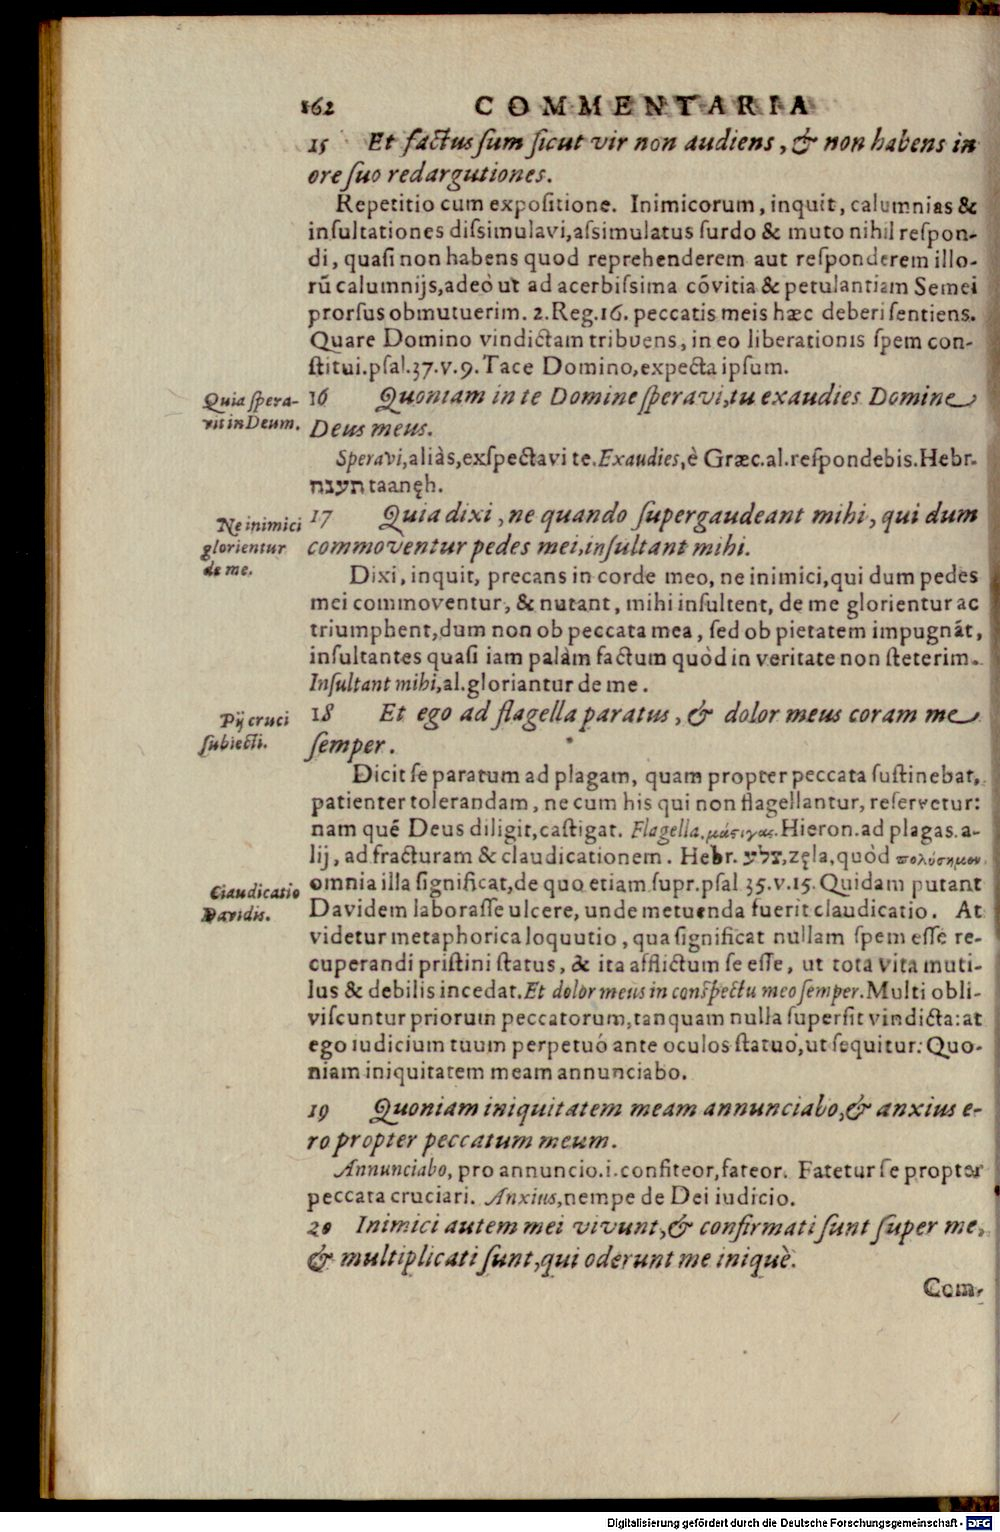 162 COMMENTARIA
15 Et factus ſum ſicut vir non audiens, & non habens in
ore ſuo redargutiones.
Repetitio cum expoſitione. Inimicorum, inquit, calumnias &
inſultationes diſsimulavi, aſsimulatus ſurdo & muto nihil reſpon-
di, quaſi non habens quod reprehenderem aut reſponderem illo-
rū calumnijs, adeò ut ad acerbiſsima cōvitia & petulantiam Semei
prorſus obmutuerim. 2. Reg. 16. peccatis meis hæc deberi ſentiens.
Quare Domino vindictam tribuens, in eo liberationis ſpem con-
ſtitui. pſal. 37. v. 9. Tace Domino, expecta ipſum.
Quia ſpera-
vit in Deum.
16 Quoniam in te Domine ſperavi, tu exaudies Domine
Deus meus.
Speravi, aliàs, exſpectavi te. Exaudies, è Græc. al. reſpondebis. Hebr.
תענה taanęh.
Ne inimici
glorientur
de me.
17 Quia dixi, ne quando ſupergaudeant mihi, qui dum
commoventur pedes mei, inſultant mihi.
Dixi, inquit, precans in corde meo, ne inimici, qui dum pedes
mei commoventur, & nutant, mihi inſultent, de me glorientur ac
triumphent, dum non ob peccata mea, ſed ob pietatem impugnāt,
inſultantes quaſi iam palàm factum quòd in veritate non ſteterim.
Inſultant mihi, al. gloriantur de me.
Pij cruci
ſubiecti.
18 Et ego ad flagella paratus, & dolor meus coram me
ſemper.
Dicit ſe paratum ad plagam, quam propter peccata ſuſtinebat,
patienter tolerandam, ne cum his qui non flagellantur, reſervetur:
nam quē Deus diligit, caſtigat. Flagella, μάστιγας. Hieron. ad plagas. a-
lij, ad fracturam & claudicationem. Hebr. צלע, zęla, quòd πολύσημον
omnia illa ſignificat, de quo etiam ſupr. pſal 35. v. 15. Quidam putant
Claudicatio
Davidis.
Davidem laboraſſe ulcere, unde metuenda fuerit claudicatio. At
videtur metaphorica loquutio, qua ſignificat nullam ſpem eſſe re-
cuperandi priſtini ſtatus, & ita afflictum ſe eſſe, ut tota vita muti-
lus & debilis incedat. Et dolor meus in conſpectu meo ſemper. Multi obli-
viſcuntur priorum peccatorum, tanquam nulla ſuperſit vindicta: at
ego iudicium tuum perpetuò ante oculos ſtatuo, ut ſequitur: Quo-
niam iniquitatem meam annunciabo.
19 Quoniam iniquitatem meam annunciabo, & anxius e-
ro propter peccatum meum.
Annunciabo, pro annuncio. i. confiteor, fateor. Fatetur ſe propter
peccata cruciari. Anxius, nempe de Dei iudicio.
20 Inimici autem mei vivunt, & confirmati ſunt ſuper me,
& multiplicati ſunt, qui oderunt me iniquè.
Com-
Digitalisierung gefördert durch die Deutsche Forschungsgemeinschaft - DFG